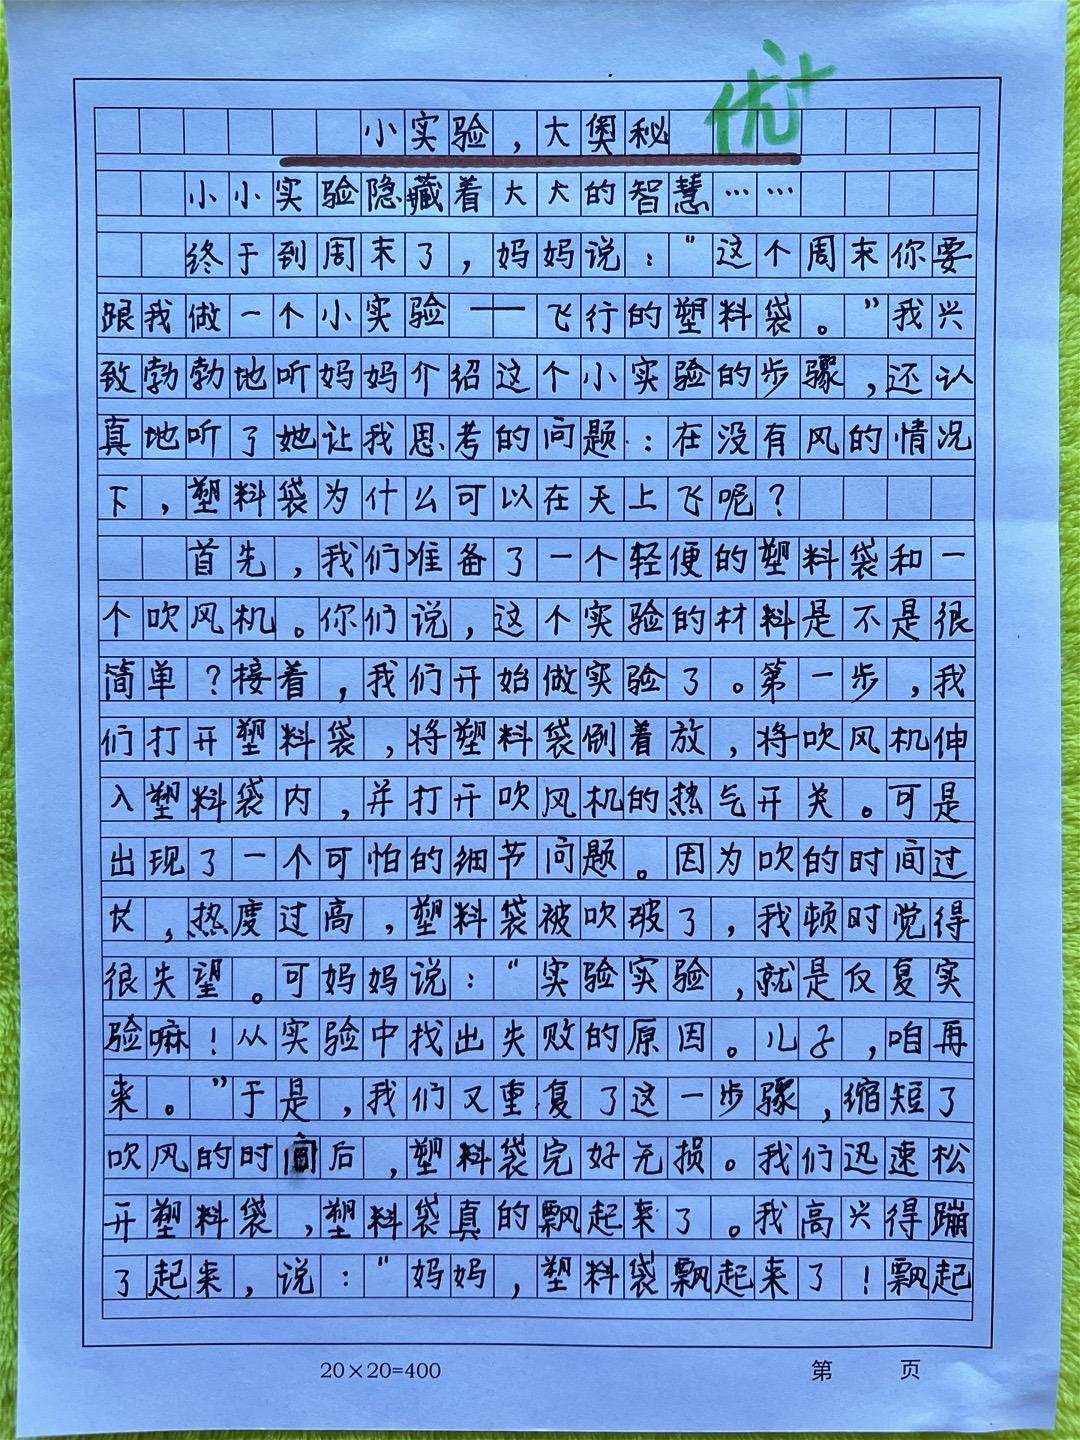 优+
小实验，大奥秘
小小实验隐藏着大大的智慧……
终于到周末了，妈妈说：“这个周末你要
跟我做一个小实验——飞行的塑料袋。”我兴
致勃勃地听妈妈介绍这个小实验的步骤，还认
真地听了她让我思考的问题：在没有风的情况
下，塑料袋为什么可以在天上飞呢？
首先，我们准备了一个轻便的塑料袋和一
个吹风机。你们说，这个实验的材料是不是很
简单？接着，我们开始做实验了。第一步，我
们打开塑料袋，将塑料袋倒着放，将吹风机伸
入塑料袋内，并打开吹风机的热气开关。可是
出现了一个可怕的细节问题。因为吹的时间过
长，热度过高，塑料袋被吹破了，我顿时觉得
很失望。可妈妈说：“实验实验，就是反复实
验嘛！从实验中找出失败的原因。儿子，咱再
来。”于是，我们又重复了这一步骤，缩短了
吹风的时间后，塑料袋完好无损。我们迅速松
开塑料袋，塑料袋真的飘起来了。我高兴得蹦
了起来，说：“妈妈，塑料袋飘起来了！飘起
20×20=400
第 页